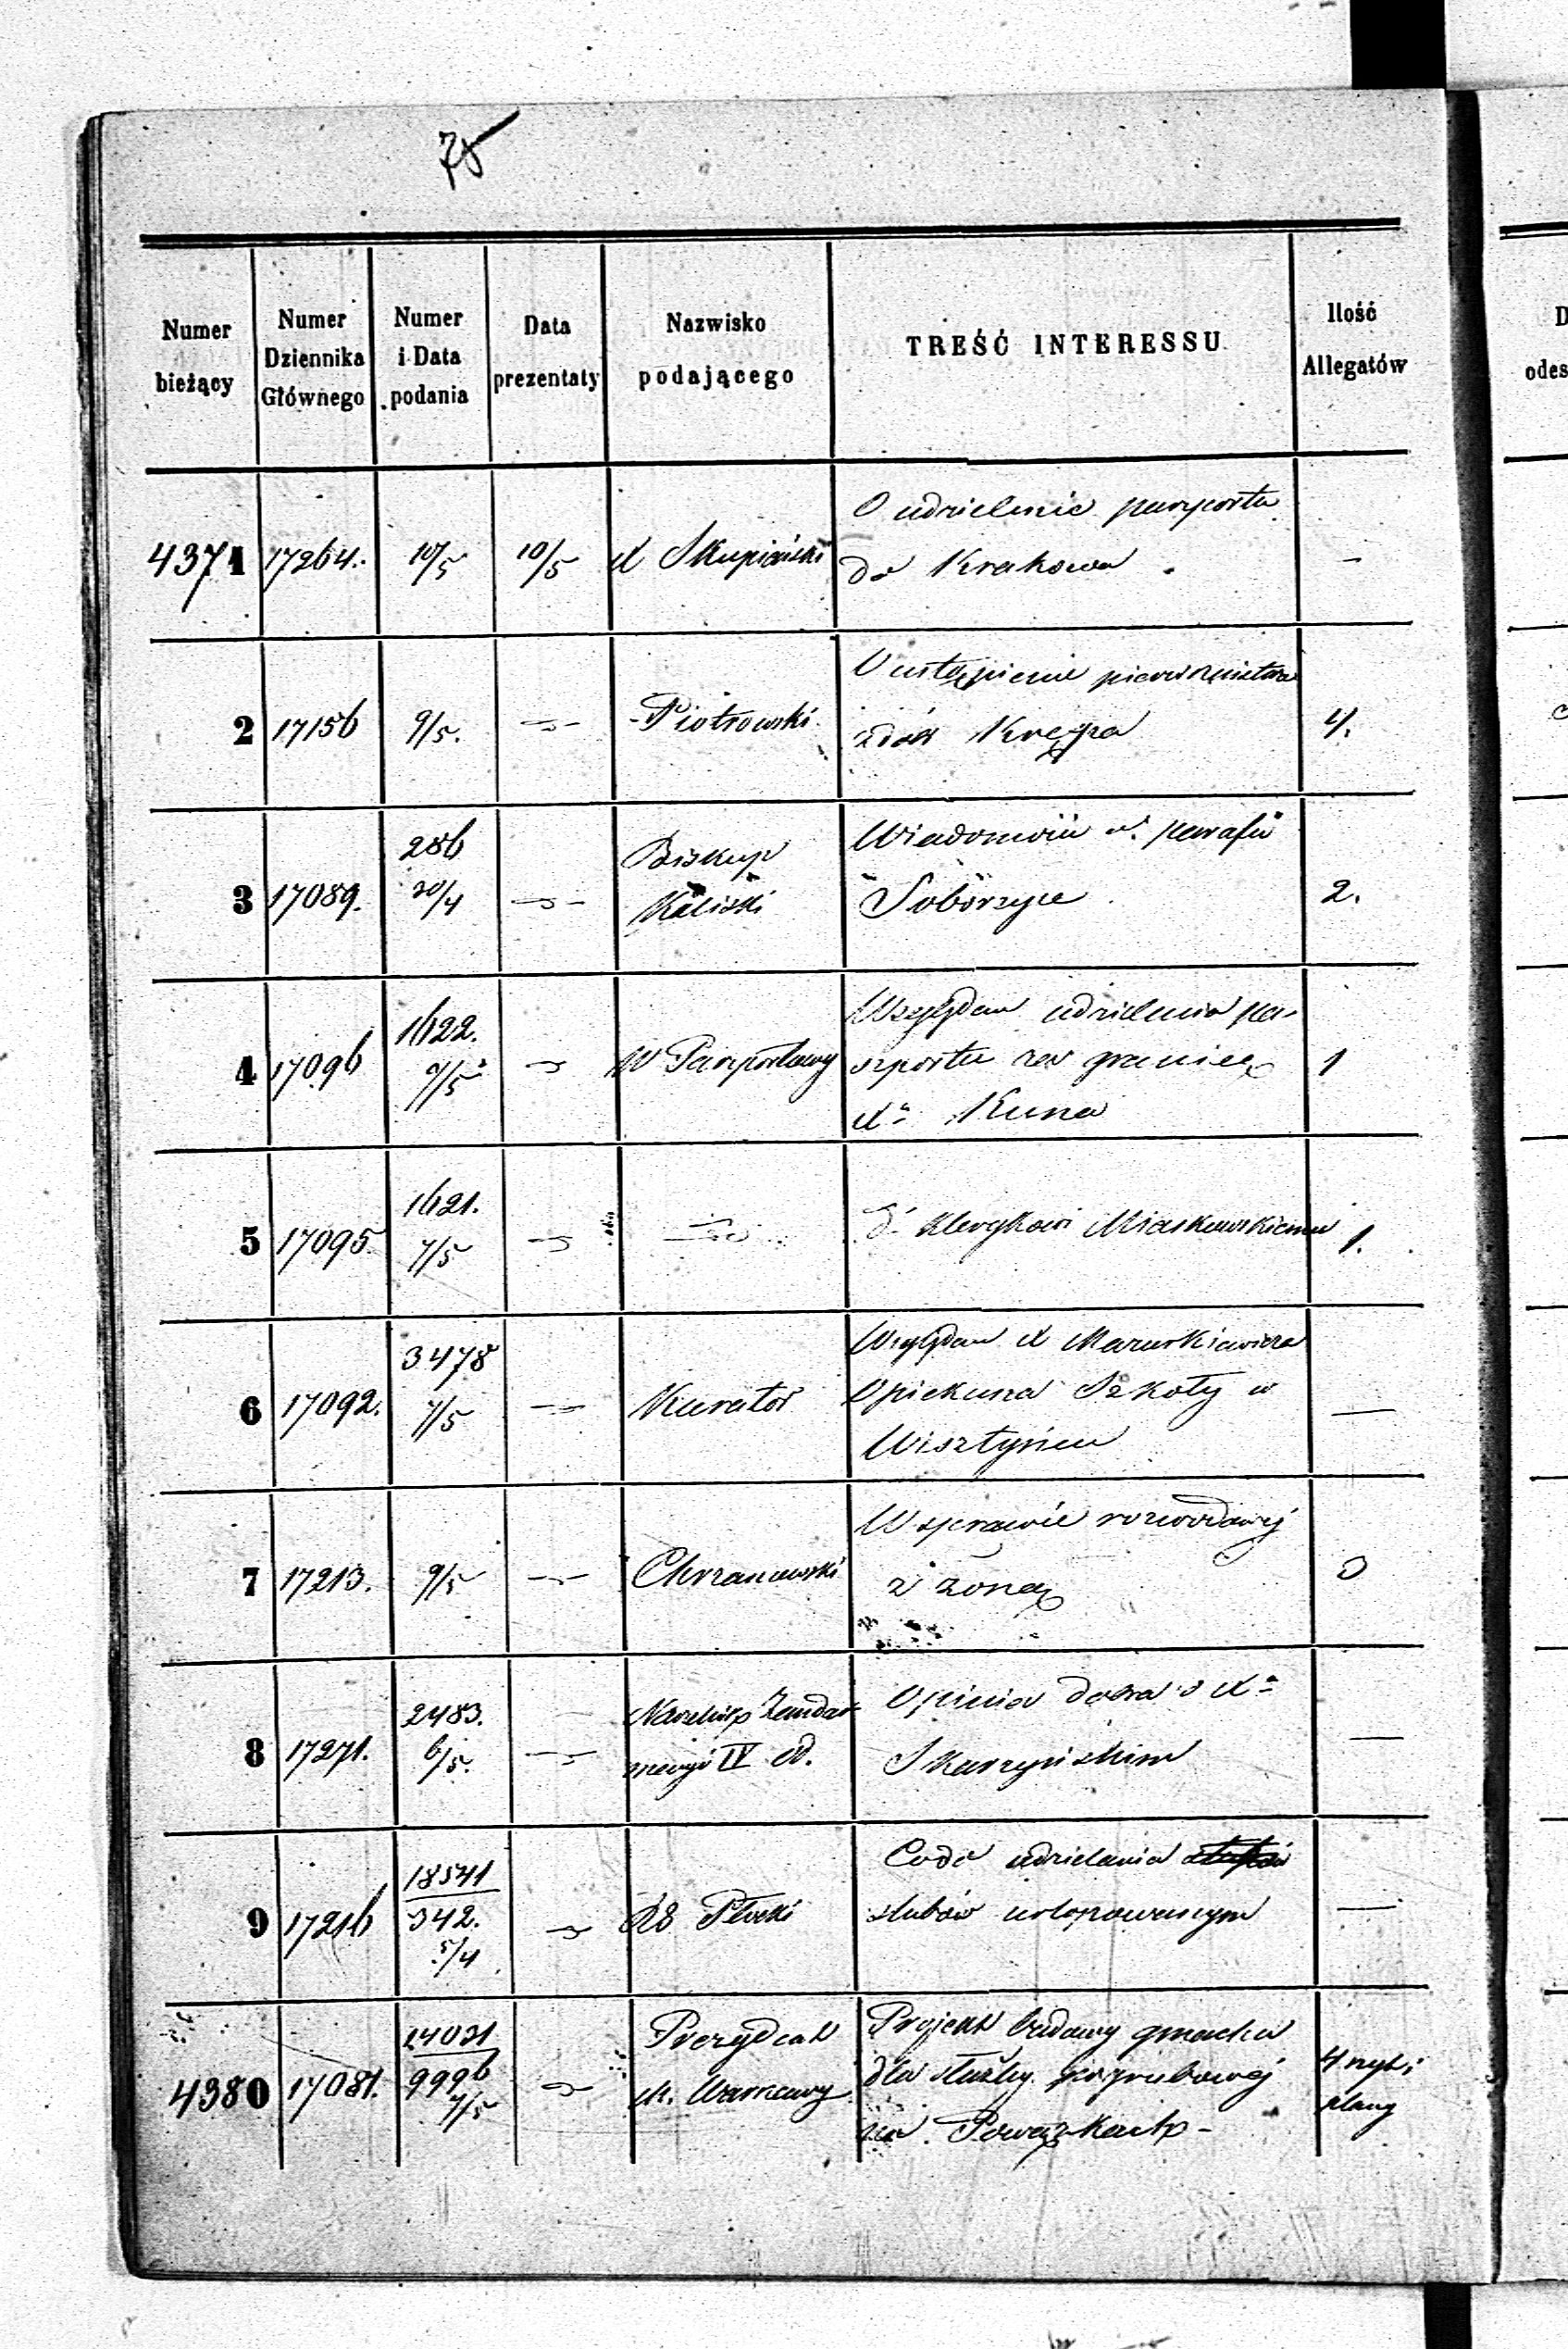 75
Numer bieżący | Numer Dziennika Głównego | Numer i Data podania | Data prezentaty | Nazwisko podającego | TREŚĆ INTERESSU | Ilość Allegatów
4371 | 17264. | 10/5 | 10/5 | X Skupiński | O udzielenie paszportu
do Krakowa | —
2 | 17156 | 9/5. | — | Piotrowski | O ustąpienie pierwszeństwa
Krępa | 4.
3 | 17089. | 286
20/4 | — | Biskup
Kaliski | Wiadomość o parafii
Soborzyce | 2.
4 | 17096 | 1622.
9/5 | — | W Paszportowy | Względem udzielenia pa-
szportu za granicę
Xa Kuna | 1
5 | 17095 | 1621.
7/5 | — | — | do Klerykowi Miaskowskiemu | 1.
6 | 17092. | 3478
7/5 | — | Kurator | Względem X Mazurkiewicza
Opiekuna Szkoły w
Wisztyńcu | —
7 | 17213. | 9/5 | — | Chrzanowski | W sprawie rozwodowej
z żoną | 3
8 | 17271. | 2483.
6/5. | — | Naczelnik Żandar-
meryi IV | Opinia dobra o Xa
Skarzyńskim | —
9 | 17216 | 18541
342.
5/4 | — | Płocki | Co do udzielania
ślubów urlopowanym | —
4380 | 17081. | 14031
9996
7/5 | — | Prezydent
m. Warszawy | Projekt budowy gmachu
dla służby pogrzebowej
na Powązkach - | 4 i
plany
D
odes